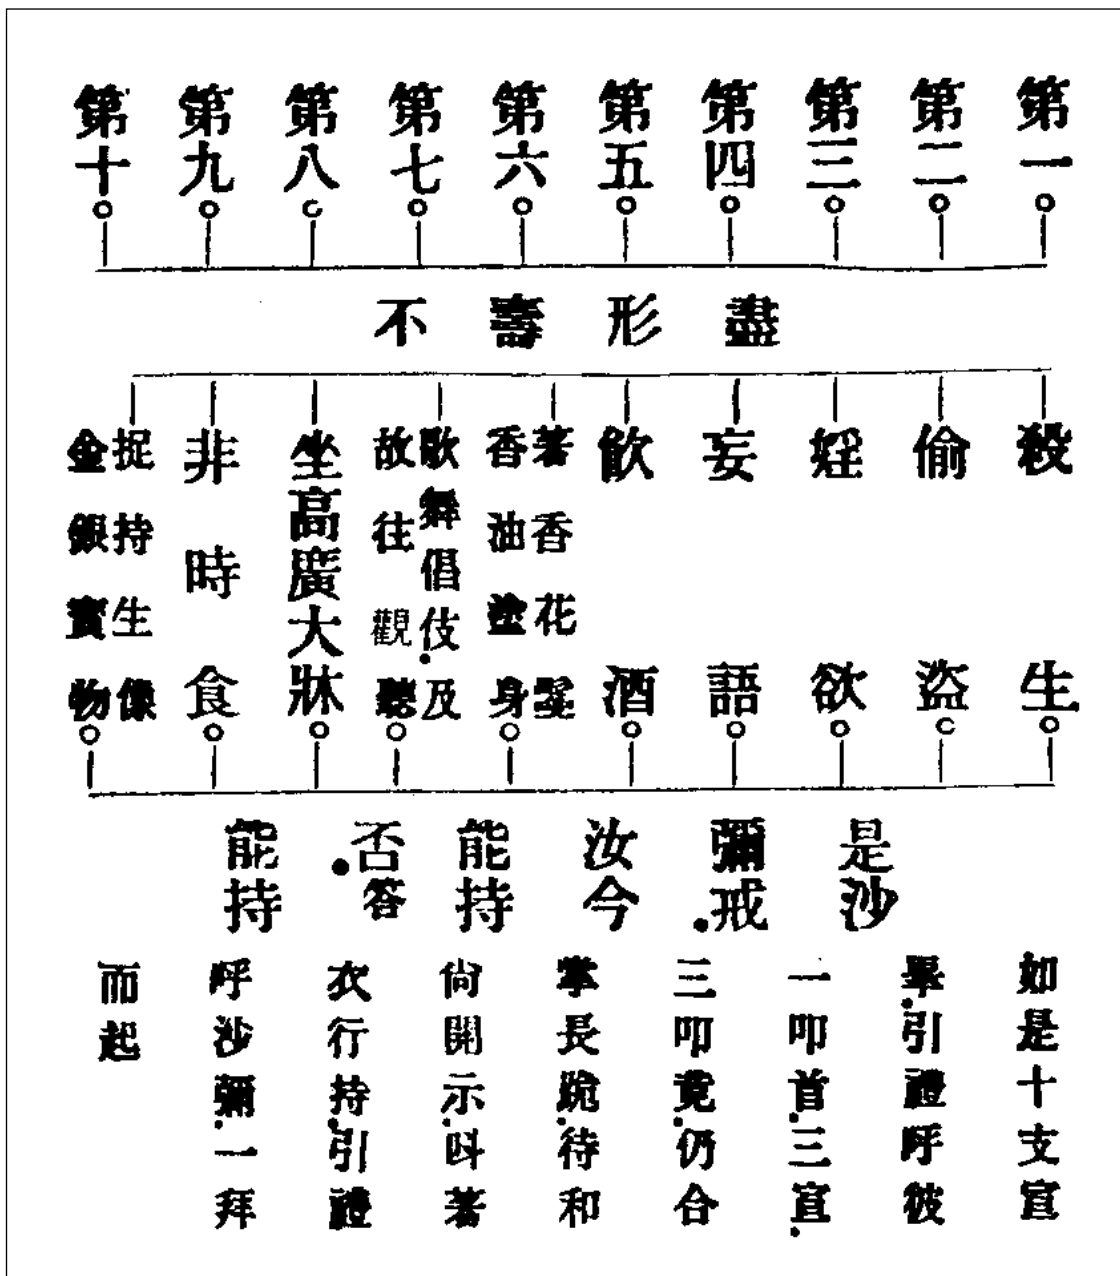 第一
第二
第三
第四
第五
第六
第七
第八
第九
第十
盡形壽不
殺生
偷盜
婬欲
妄語
飲酒
著香花鬘
香油塗身
歌舞倡伎.及
故往觀聽
坐高廣大牀
非時食
捉持生像
金銀寶物
是沙
彌戒.
汝今
能持
否.答
能持
如是十支宣
畢.引禮呼彼
一叩首.三宣.
三叩竟.仍合
掌長跪.待和
尙開示.呌著
衣行持.引禮
呼沙彌.一拜
而起